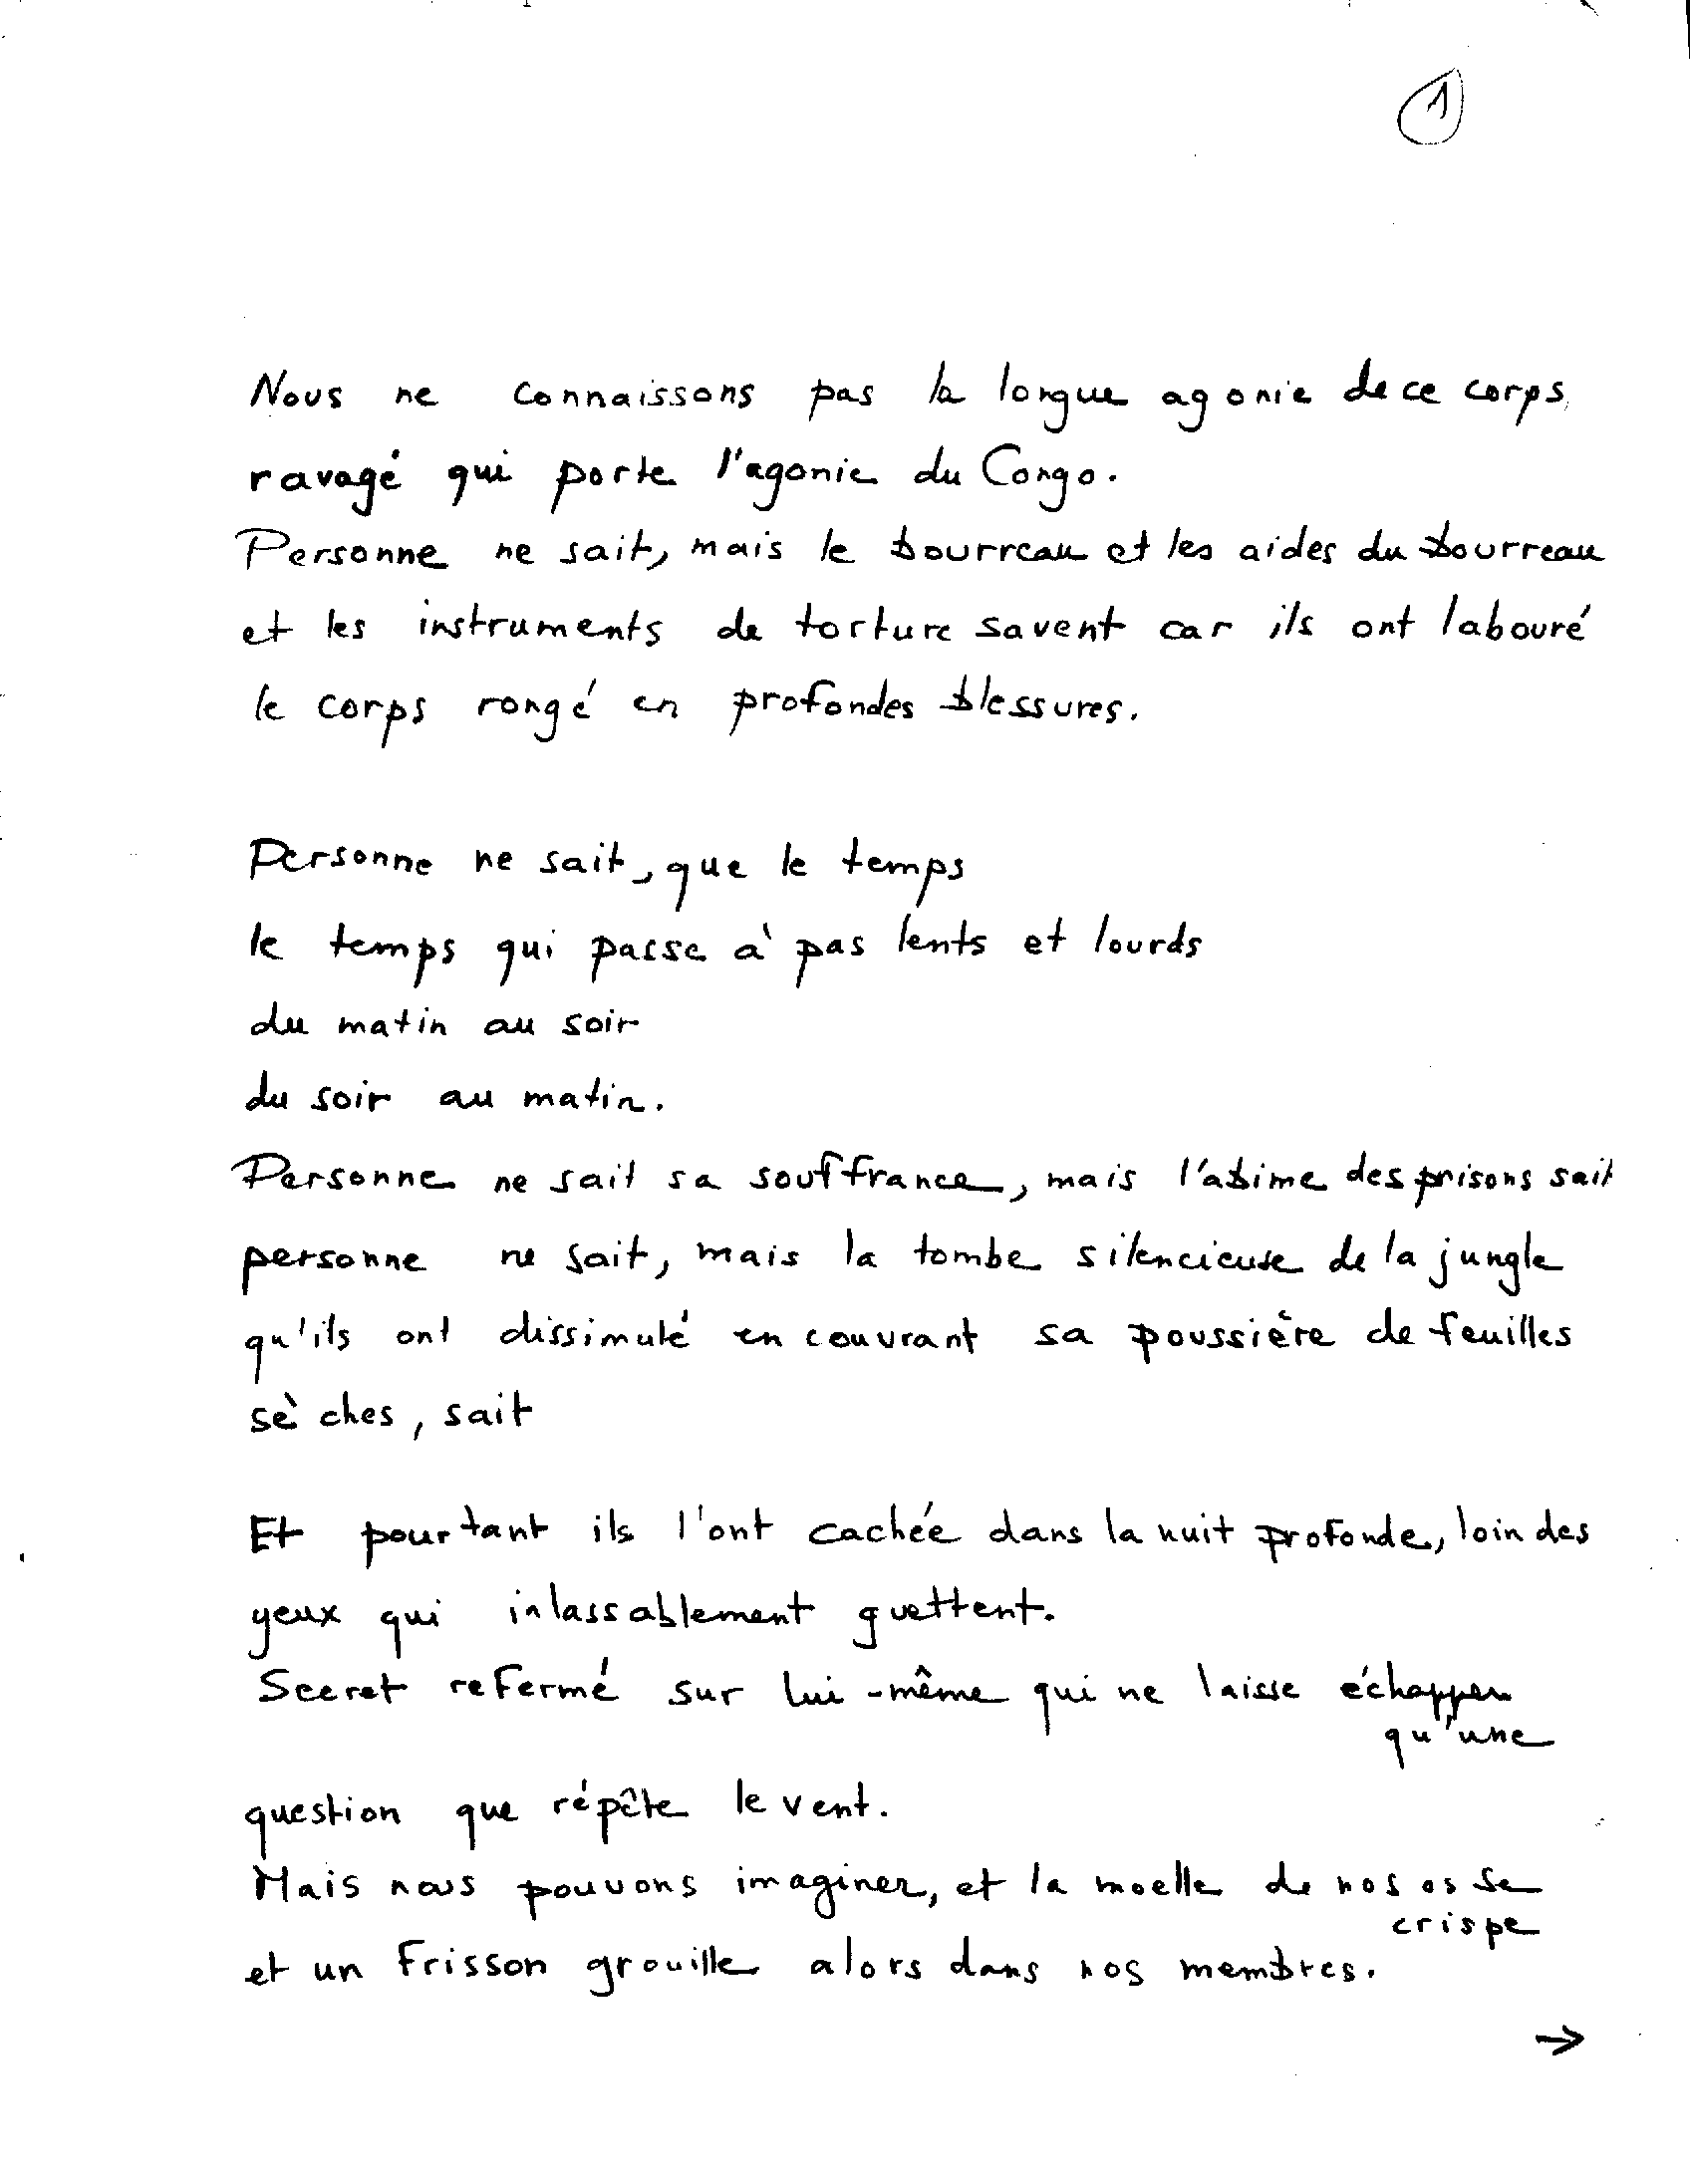 1
Nous ne connaissons pas la longue agonie de ce corps
ravagé qui porte l'agonie du Congo.
Personne ne sait, mais le bourreau et les aides du bourreau
et les instruments de torture savent car ils ont labouré
le corps rongé en profondes blessures.
Personne ne sait, que le temps
le temps qui passe à pas lents et lourds
du matin au soir
du soir au matin.
Personne ne sait sa souffrance, mais l'abime des prisons sait
personne ne sait, mais la tombe silencieuse de la jungle
qu'ils ont dissimulé en couvrant sa poussière de feuilles
sèches, sait
Et pourtant ils l'ont cachée dans la nuit profonde, loin des
yeux qui inlassablement guettent.
Secret refermé sur lui-même qui ne laisse échapper
qu'une
question que répête le vent.
Mais nous pouvons imaginer, et la moelle de nos os se
crispe
et un frisson grouille alors dans nos membres.
→